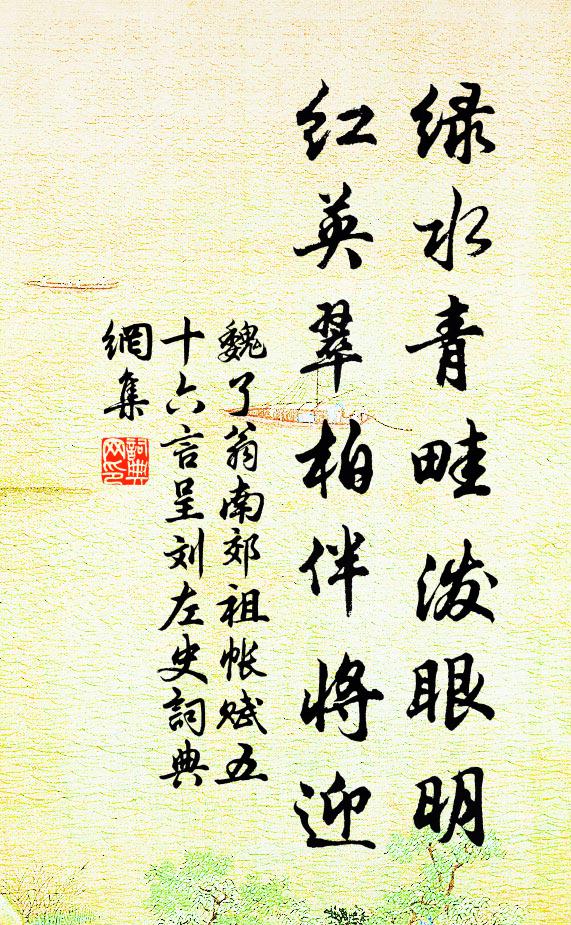 绿水青畦泼眼明
红英翠柏伴将迎
魏了翁南郊祖帐赋五
十六言呈刘左史词典
網集
詞典
网印